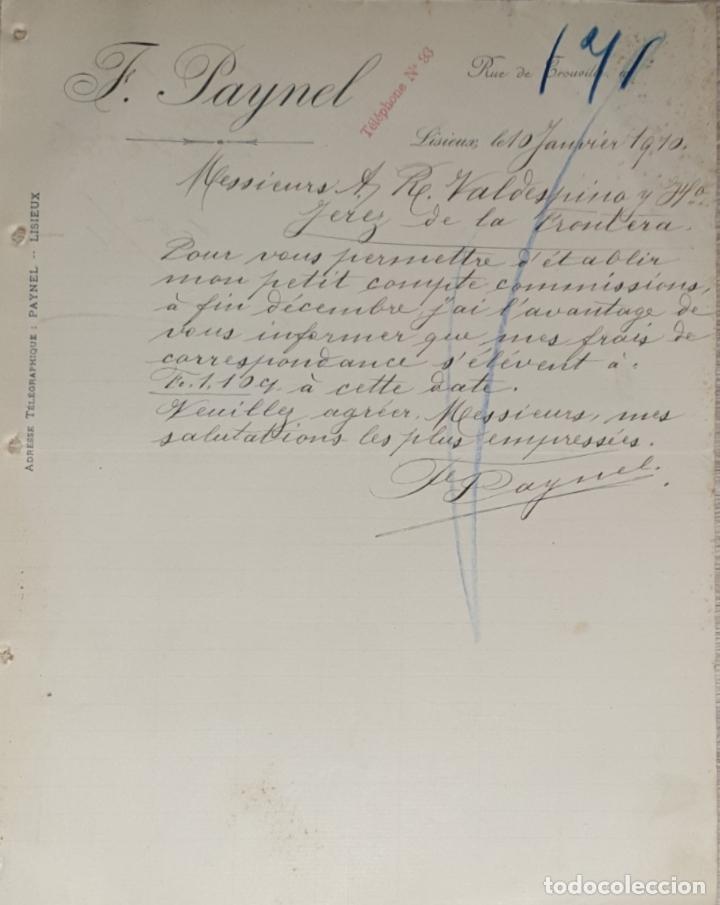 F. Paynel
Téléphone Nº 93
Rue de Trouville
171
Lisieux, le 10 Janvier 1910.
Messieurs A. R. Valdespino y Hº
Jerez de la Frontera.
Pour vous permettre d'établir
mon petit compte commissions,
à fin décembre j'ai l'avantage de
vous informer que mes frais de
correspondance s'élévent à.
F. 1.109. à cette date.
Veuillez agréer, Messieurs, mes
salutations les plus empressées.
F Paynel.
ADRESSE TÉLÉGRAPHIQUE : PAYNEL -- LISIEUX
todocoleccion